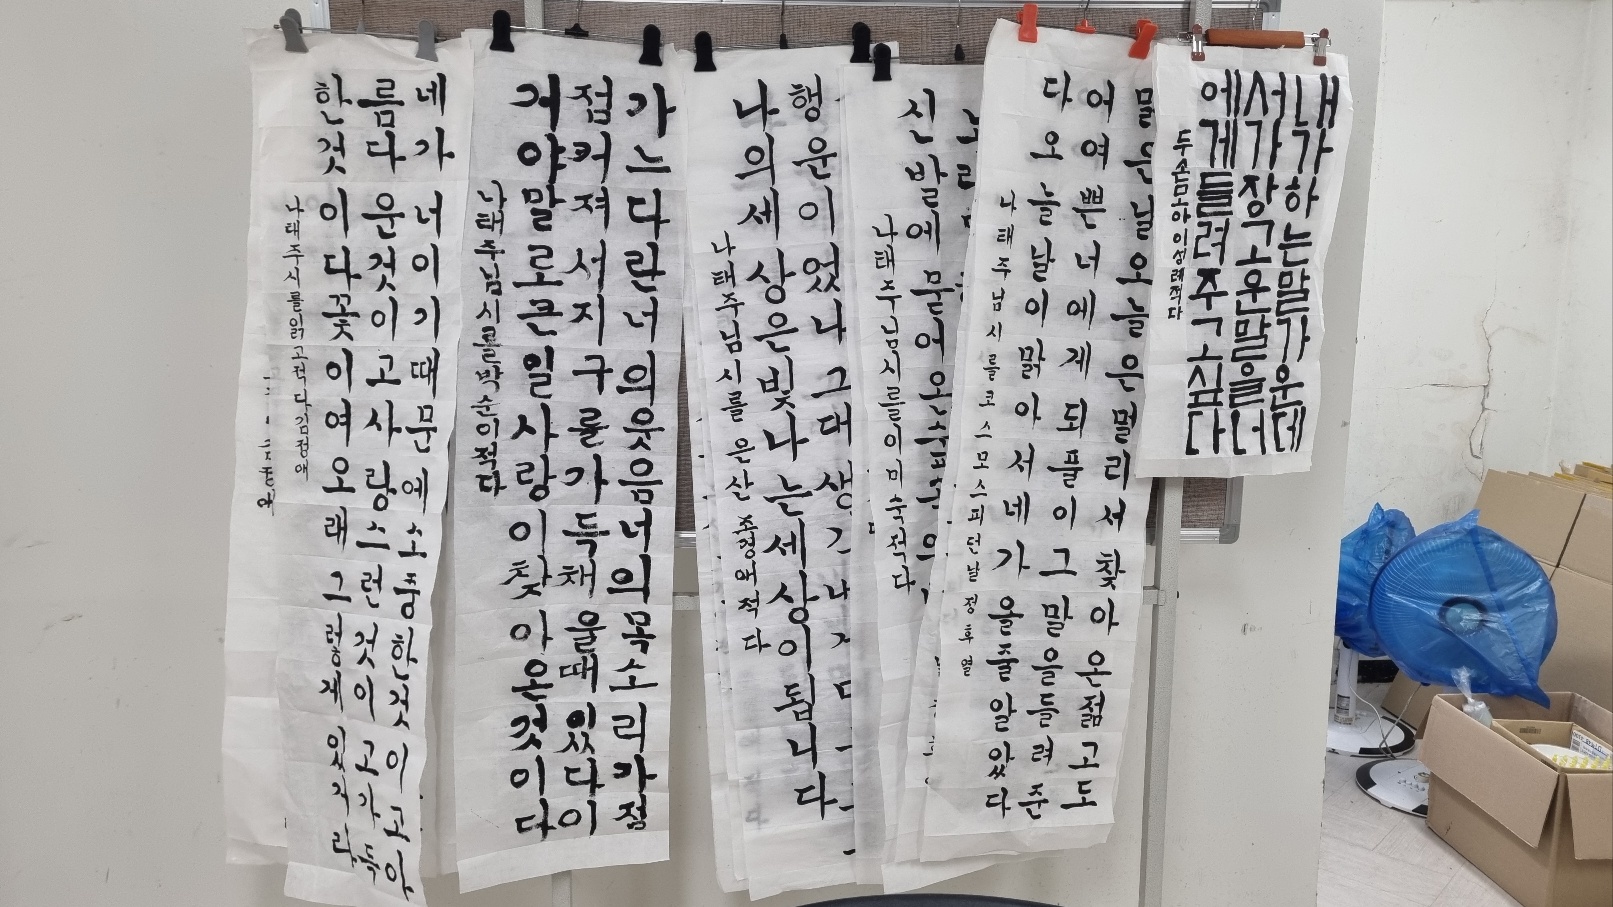 네가너이기때문에소중한것이고아
름다운것이고사랑스런것이고가득
한것이다꽃이여오래그렇게있거라
나태주시를읽고적다김정애
가느다란너의웃음너의목소리가점
접커져서지구를가득채울때있다이
거야말로큰일사랑이찾아온것이다
나태주님시를박순이적다
행운이었나그대생
나의세상은빛나는세상이됩니다
나태주님시를은산조경애적다
신발에묻어온
나태주님시를이미숙적다
맑은날오늘은멀리서찾아온젊고도
어여쁜너에게되풀이그말을들려준
다오늘날이맑아서네가올줄알았다
나태주님시를코스모스피던날정후열
내가하는말가운데
서가장고운말을너
에게들려주고싶다
두손모아이성례적다